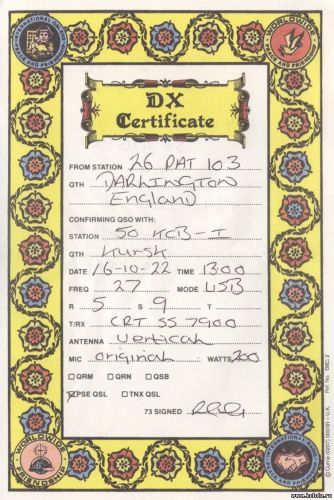 DX
Certificate
FROM STATION 26 PAT 103
QTH DARRINGTON
England
CONFIRMING QSO WITH:
STATION 50 KCB-I
QTH Kursk
DATE 16-10-22 TIME 13:00
FREQ 27 MODE USB
R 5 S 9 T
T/RX CRT SS 7900
ANTENNA Vertical
MIC original WATTS 200
QRM QRN QSB
PSE QSL TNX QSL
73 SIGNED
WORLDWIDE
WORLDWIDE
FRIENDSHIP
Ref. No. DXC 2